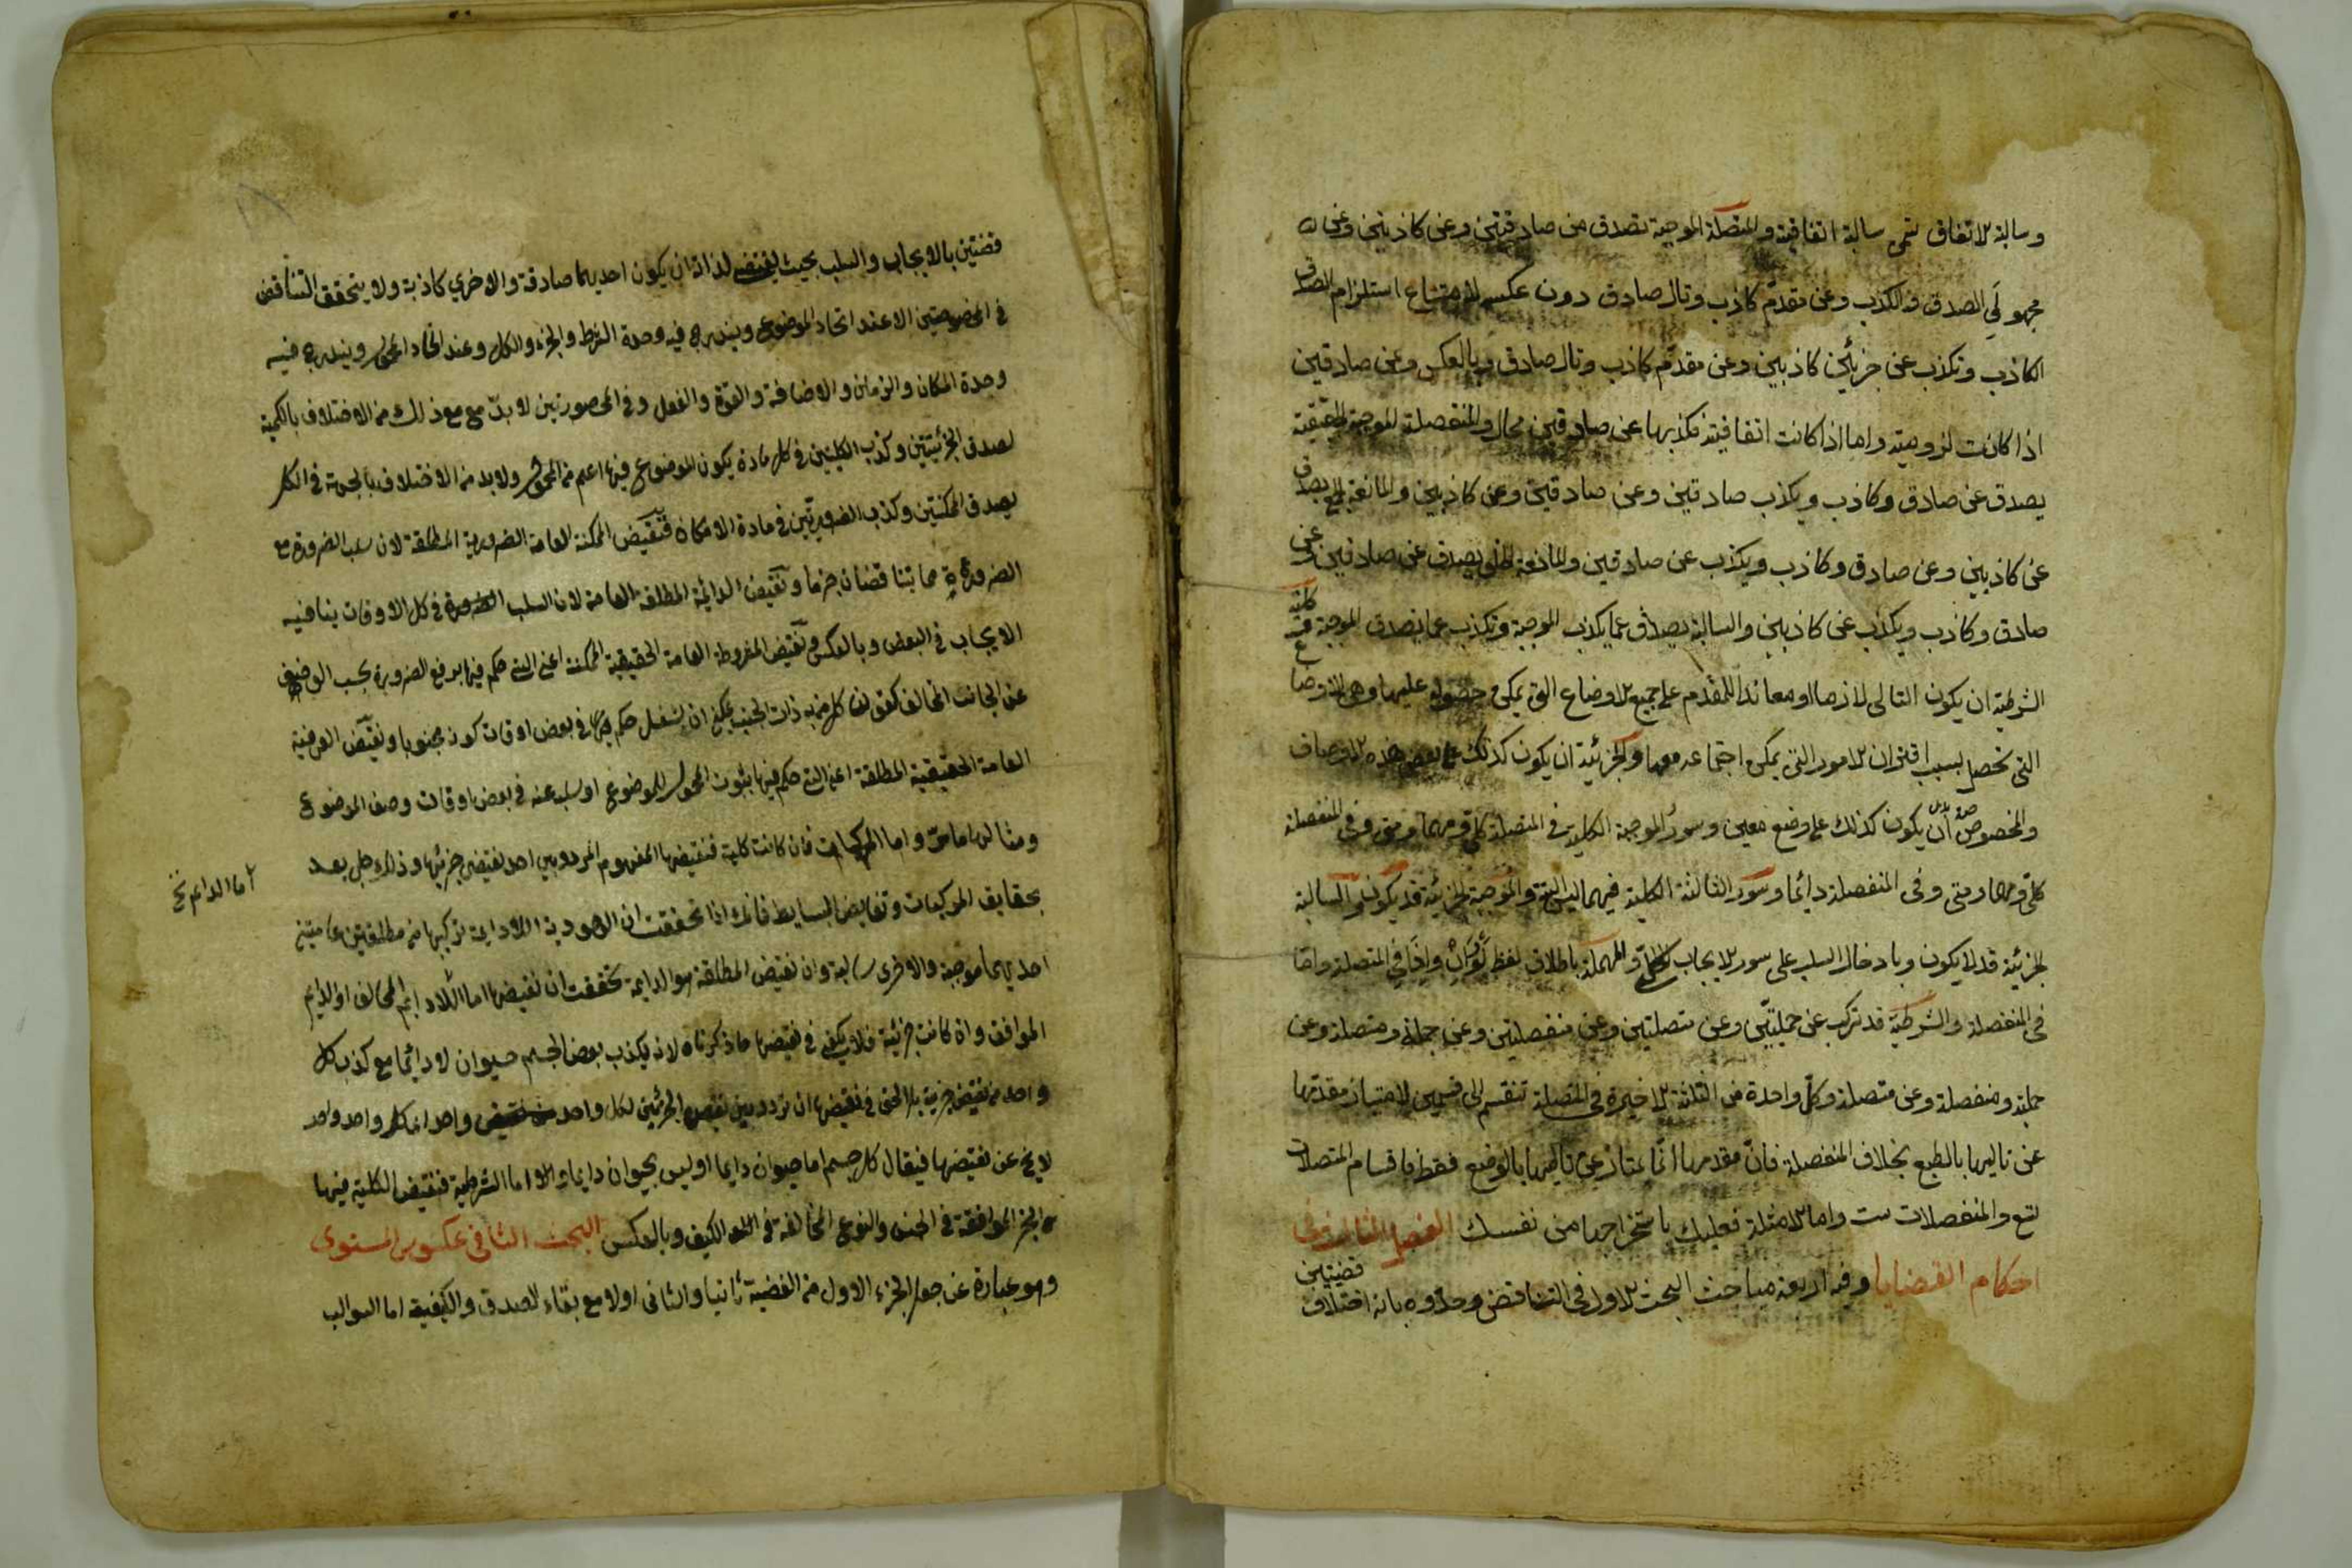 وسالبة الاتفاق تسمى سالبة اتفاقية والمتصلة الموجبة تصدق من صادقتين وعن كاذبتين وعن
مجهولَي الصدق والكذب وعن مقدّم كاذب وتال صادق دون عكسه لامتناع استلزام الصادق
الكاذب وتكذب عن جزئين كاذبين وعن مقدّم كاذب وتال صادق وبالعكس وعن صادقين
اذا كانت لزومية واما اذا كانت اتفاقية فكذبها عن صادقين محال والمنفصلة الموجبة الحقيقية
يصدق عن صادق وكاذب ويكذب صادقين وعن صادقين وعن كاذبين والمانعة الجمع يصدق
عن كاذبين وعن صادق وكاذب ويكذب عن صادقين والمانعة الخلو يصدق عن صادقين وعن
صادق وكاذب ويكذب عن كاذبين والسالبة يصدق عما يكذب الموجبة وتكذب عما يصدق الموجبة كلية
الشرطية ان يكون التالى لازما او معاندا للمقدم على جميع الاوضاع التى يمكن حصوله عليها وهى الاوضاع
التى تحصل بسبب اقتران الامور التى يمكن اجتماعه معها والجزئية ان يكون كذلك على بعض هذه الاوضاع
والمخصوصة ان يكون كذلك على وضع معين وسور الموجبة الكلية فى المتصلة كلما ومهما ومتى وفى المنفصلة
كلما ومهما ومتى وفى المنفصلة دائما وسور السالبة الكلية فيهما ليس البتة والموجبة الجزئية قد يكون والسالبة
الجزئية قد لا يكون وبادخال السلب على سور الايجاب الكلى والمهملة باطلاق لفظ لَوْ وَاِنْ واِذَا فى المتصلة واِمّا
فى المنفصلة والشرطية قد تركب عن حمليتين وعن متصلتين وعن منفصلتين وعن حملية ومتصلة وعن
حملية ومنفصلة وعن متصلة وكل واحدة من الثلثة الاخيرة فى المتصلة تنقسم الى قسمين لامتياز مقدمها
عن تاليها بالطبع بخلاف المنفصلة فانّ مقدمها انّما يمتاز عن تاليها بالوضع فقط فاقسام المتصلات
تسع والمنفصلات ست واما الامثلة فعليك باستخراجها من نفسك الفصل الثالث فى
احكام القضايا وفيه اربعة مباحث البحث الاول فى التناقض وحدّوه بانه اختلاف قضيتين
قضتين بالايجاب والسلب بحيث يقتضى لذاته ان يكون احديهما صادقة والاخري كاذبة ولا يتحقق التناقض
فى المخصوصتين الا عند اتحاد الموضوع ويندرج فيه وحدة الشرط والجزء والكل وعند اتحاد المحمول ويندرج فيه
وحدة المكان والزمان والاضافة والقوة والفعل وفى المحصورتين لا بدّ مع مع ذلك من الاختلاف بالكمية
لصدق الجزئيتين وكذب الكليتين فى كل مادة يكون الموضوع فيها اعم من المحمول ولا بد من الاختلاف بالجهة فى الكل
يصدق الممكنتين وكذب الضروريتين فى مادة الامكان فنقيض الممكنة العامة الضرورية المطلقة لان سلب الضرورة مع
الضرورة مما يتناقضان جزما ونقيض الدائمة المطلقة العامة لان السلب فى كل الاوقات ينافيه
الايجاب فى البعض وبالعكس ونقيض المشروطة العامة الحقيقية الممكنة اعنى التى حكم فيها برفع الضرورة بحسب الوصف
عن الجانب المخالف كقولنا كل من به ذات الجنب يمكن ان يسعل فى بعض اوقات كونه مجنوبا ونقيض العرفية
العامة الحقيقية المطلقة اعنى التى حكم فيها بثبوت المحمول للموضوع او سلبه عنه فى بعض اوقات وصف الموضوع
ومثالها ما مرّ واما المركبات فان كانت كلية فنقيضها المفهوم المردد بين احد نقيضى جزئيها وذلك جلى بعد
بحقايق المركبات ونقايض البسايط فانك اذا تحققت ان الوجودية اللادايمة تركيبها من مطلقتين عامتين
احديهما موجبة والاخرى سالبة وان نقيض المطلقة هو الدايمة تحققت ان نقيضها اما اللادايم المخالف او الدايم
اما الدايم نخ
الموافق وان كانت جزئية فلا يكفى فى نقيضها ما ذكرناه لانه يكذب بعض الجسم حيوان لا دائما مع كذب كل
واحد من نقيضى جزئيه بل الحق فى نقيضها ان تردد بين نقيضى الجزئين لكل واحد واحد اى كل واحد واحد
لا يخ عن نقيضها فيقال كل جسم اما حيوان دايما او ليس بحيوان دايما واما الشرطية فنقيض الكلية منها
الجزئية الموافقة فى الجنس والنوع المخالفة فى الكيف وبالعكس البحث الثانى فى عكس المستوى
وهو عبارة عن جعل الجزء الاول من القضية ثانيا والثانى اولا مع بقاء الصدق والكيفية اما السوالب